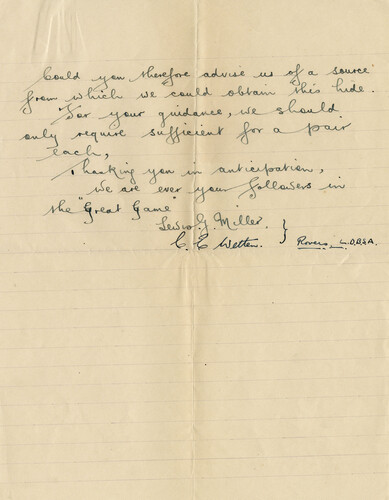 Could you therefore advise us of a source
from which we could obtain this hide.
For your guidance, we should
only require sufficient for a pair
each,
Thanking you in anticipation,
We are ever your followers in
the "Great Game"
Lewis G. Miller.
C. E. Wetten.
Rovers,